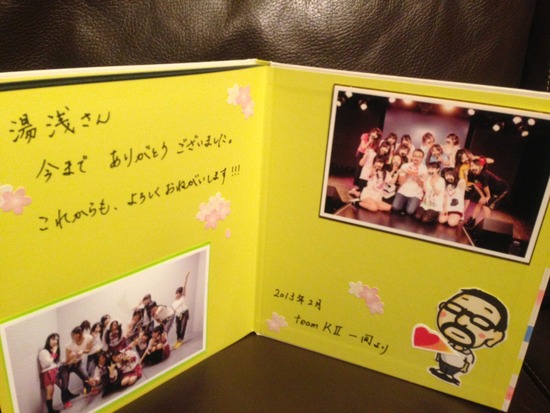 湯浅さん
今まで ありがとう ございました。
これからも、よろしくおねがいします!!!
2013年2月
team KⅡ 一同より